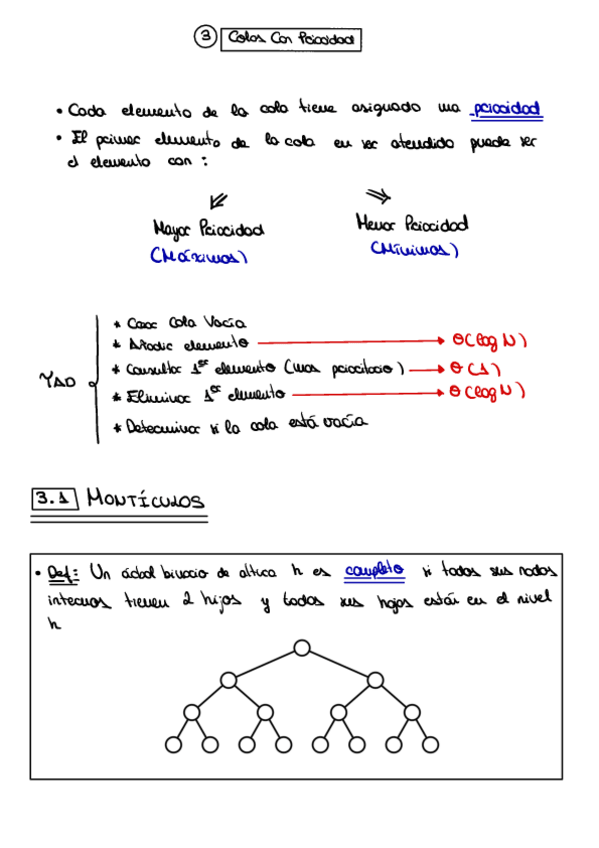 3 Colas Con Prioridad
• Cada elemento de la cola tiene asignado una prioridad
• El primer elemento de la cola en ser atendido puede ser
el elemento con :
Mayor Prioridad Menor Prioridad
(Máximos) (Mínimos)
* Crear Cola Vacía
* Añadir elemento → Θ(log N)
* Consultar 1er elemento (mas prioritario) → Θ(1)
TAD
* Eliminar 1er elemento → Θ(log N)
* Determinar si la cola está vacía
3.1 MONTÍCULOS
• Def: Un árbol binario de altura h es completo si todos sus nodos
internos tienen 2 hijos y todas sus hojas están en el nivel
h